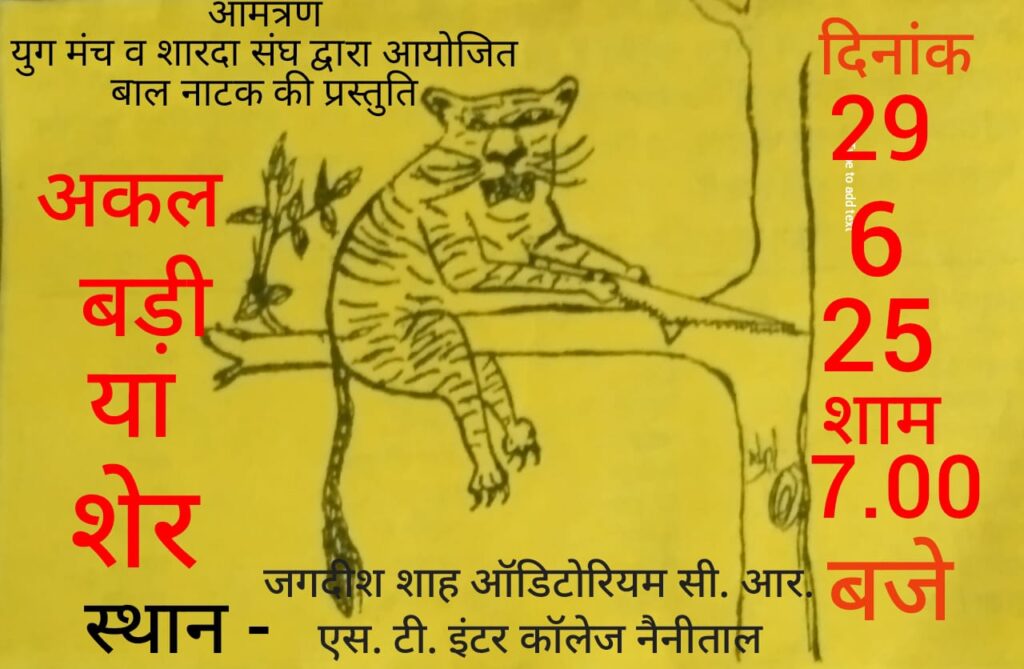 आमत्रण
युग मंच व शारदा संघ द्वारा आयोजित
बाल नाटक की प्रस्तुति
अकल
बड़ी
या
शेर
दिनांक
29
6
25
शाम
7.00
बजे
स्थान -
जगदीश शाह ऑडिटोरियम सी. आर.
एस. टी. इंटर कॉलेज नैनीताल
to add text